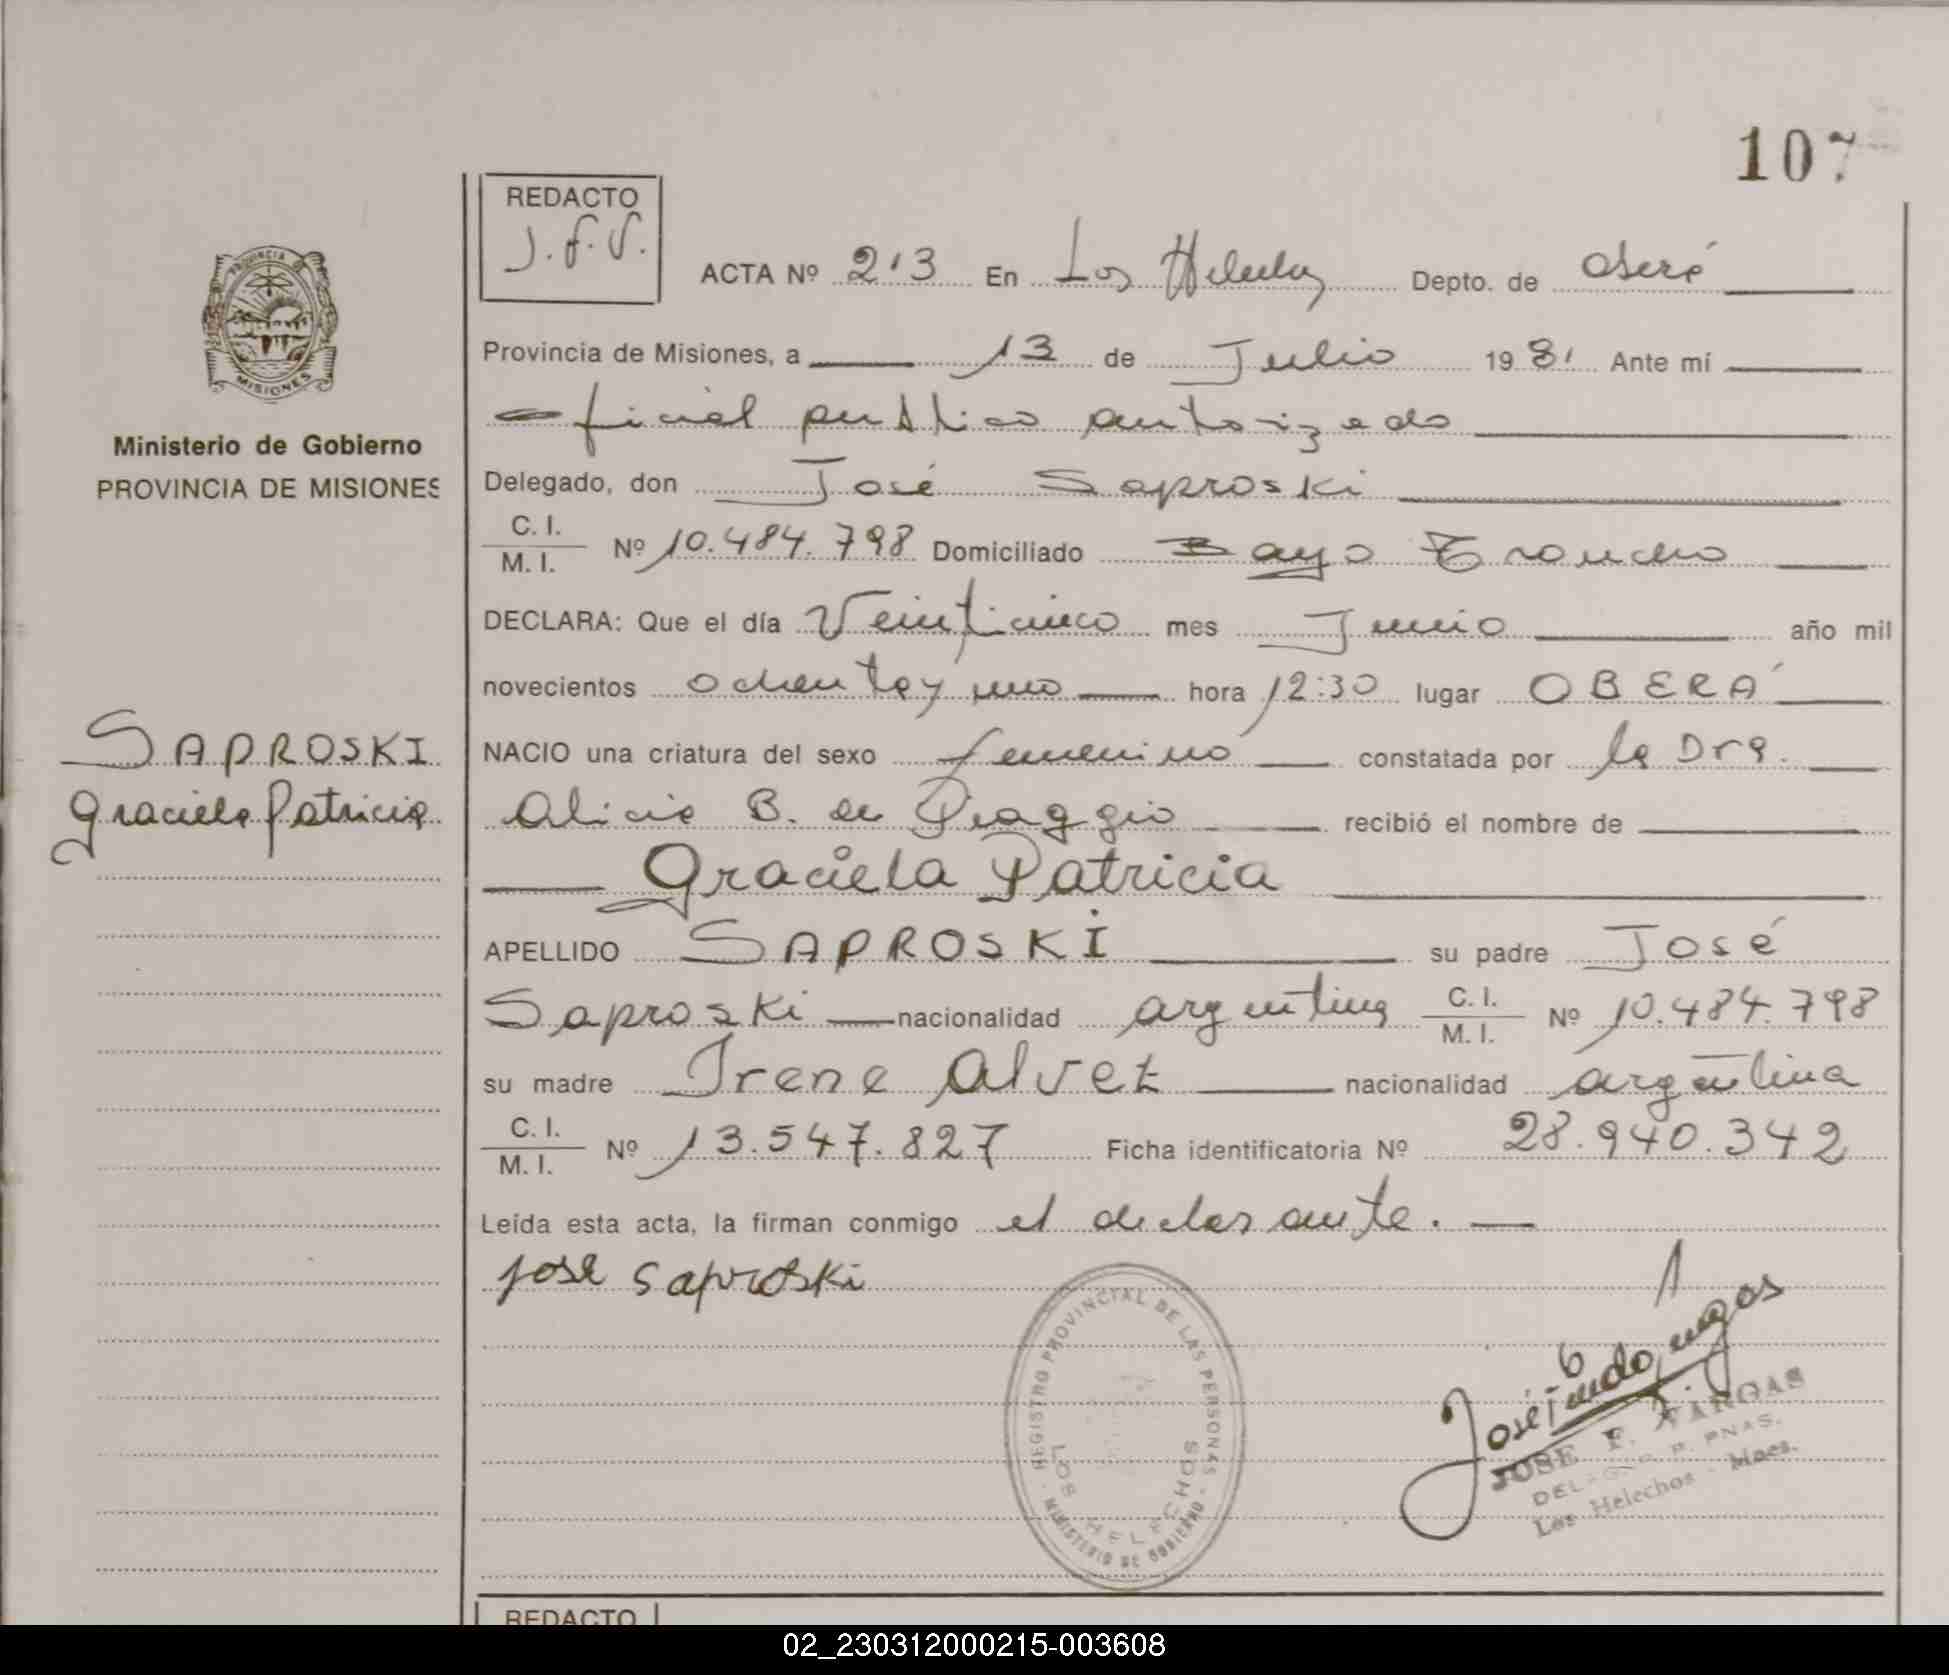 107
REDACTO
J.F.V.
ACTA Nº 213 En Los Helechos Depto. de Oberá
PROVINCIA DE
MISIONES
Provincia de Misiones, a 13 de Julio 1981 Ante mí
Ministerio de Gobierno
PROVINCIA DE MISIONES
oficial publico autorizado
Delegado, don José Saproski
C. I. / M. I. Nº 10.484.798 Domiciliado Bayo Troncho
DECLARA: Que el día Veinticinco mes Junio año mil
novecientos ochenta y uno hora 12:30 lugar OBERÁ
SAPROSKI
Graciela Patricia
NACIO una criatura del sexo femenino constatada por la Dra.
Alicia B. de Piaggio recibió el nombre de
Graciela Patricia
APELLIDO SAPROSKI su padre José
Saproski nacionalidad argentina C. I. / M. I. Nº 10.484.798
su madre Irene Alvez nacionalidad argentina
C. I. / M. I. Nº 13.547.827 Ficha identificatoria Nº 28.940.342
Leída esta acta, la firman conmigo el declarante.
José Saproski
REGISTRO PROVINCIAL DE LAS PERSONAS
LOS HELECHOS
MINISTERIO DE GOBIERNO
JOSE F. VARGAS
R. PNAS.
Los Helechos - Mnes.
REDACTO
02_230312000215-003608